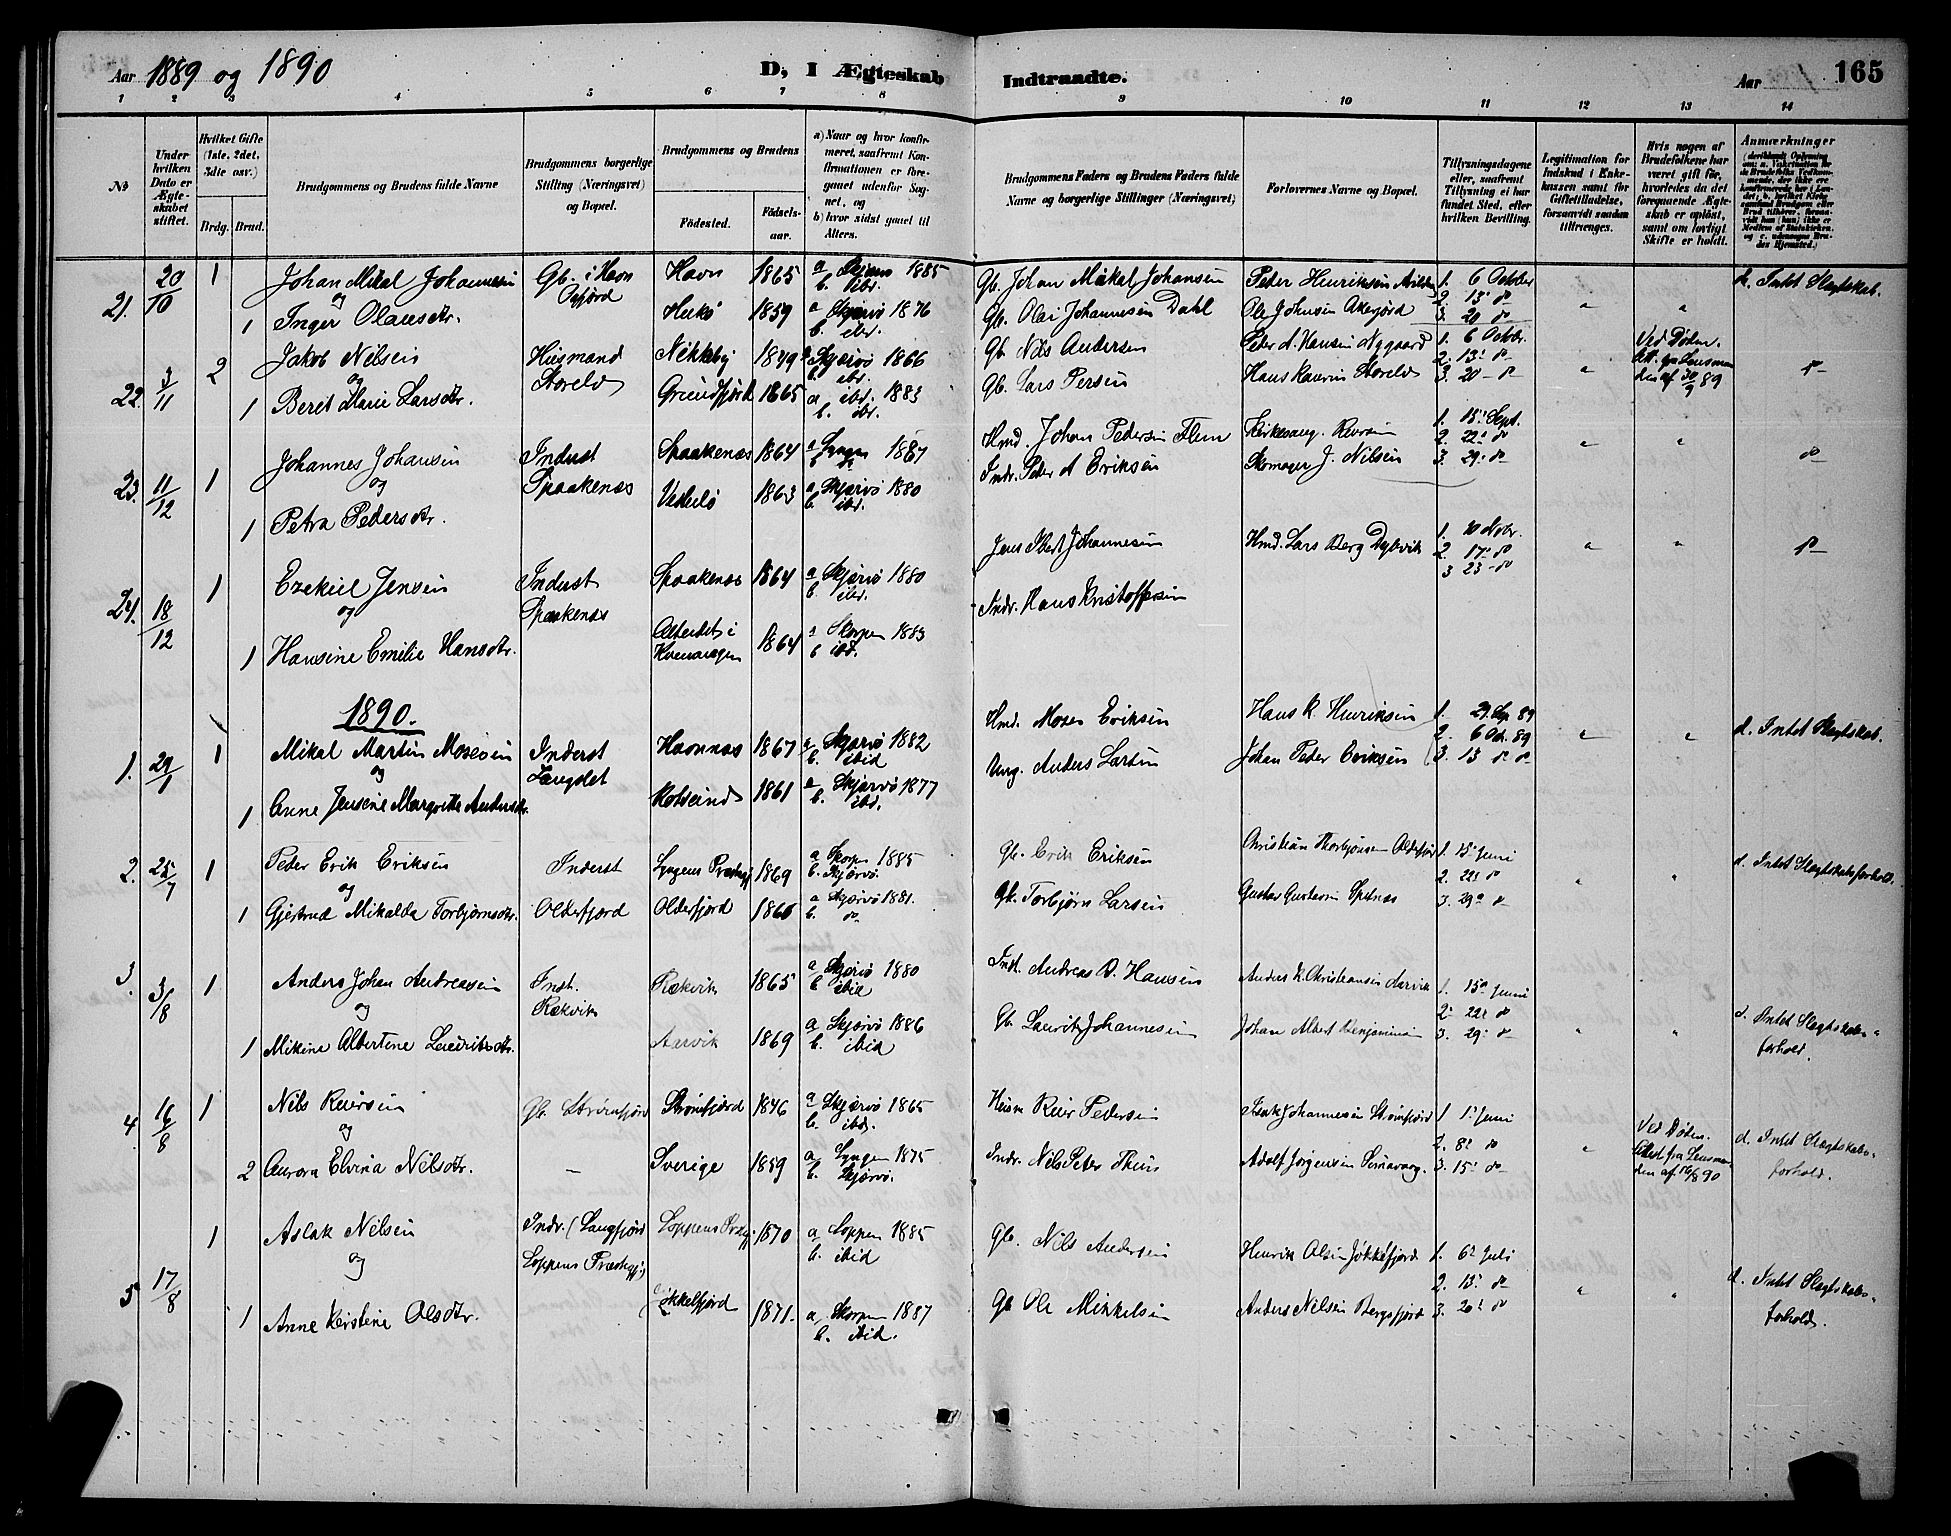 Aar 1889 og 1890
D, I Ægteskab Indtraadte.
Aar 165
1 2 3 4 5 6 7 8 9 10 11 12 13 14
No
Under hvilken Dato er Ægteskabet stiftet.
Hvilket Gifte (1ste, 2det, 3die osv.)
Brdg. Brud.
Brudgommens og Brudens fulde Navne
Brudgommens borgerlige Stilling (Næringsvei) og Bopæl.
Brudgommens og Brudens
Fødested.
Fødselsaar.
a) Naar og hvor konfirmeret, saafremt Konfirmationen er foregaaet udenfor Sognet, og
b) hvor sidst gaaet til Alters.
Brudgommens Faders og Brudens Faders fulde Navne og borgerlige Stillinger (Næringsvei)
Forlovernes Navne og Bopæl.
Tillysningsdagene eller, saafremt Tillysning ei har fundet Sted, efter hvilken Bevilling.
Legitimation for Indskud i Enkekassen samt for Giftetilladelse, forsaavidt saadan tiltrænges.
Hvis nogen af Brudefolkene har været gift før, hvorledes da det foregaaende Ægteskab er opløst, samt om lovligt Skifte er holdt.
Anmærkninger
21. 20/10 1 Johan Mikal Johannesen Gb. i Havn Havn 1865 a Skjærvø 1885 b. ibr. Gb. Johan Mikal Johansen Peder Henriksen 1. 6 October d. Intet Slegtskab.
og
1 Inger Olausdtr. 1859 a Skjærvø 1876 b. ibr. Gb. Olai Johannesen Dahl Ole Johnsen Akerfjord 2. 13 do 3. 20 do
22. 3/11 2 Jakob Nilsen Husmand Storelv Nikkeby 1849 a Skjærvø 1866 b. ibr. Gb. Nils Andersen Peder A. Hansen Nygaard 1. 6 Octobr. Ved Døden.
og
1 Berit Marie Larsdtr. Grundfjord 1865 a ibr. 1883 b. ibr. Gb. Lars Persen Hans Laurin Storelv 2. 13 do 3. 20 do den af 30/9 89
23. 11/12 1 Johannes Johansen Inderst Spaakenæs Spaakenæs 1864 a Lyngen 1887 Hmd. Johan Pedersen Flem 1. 15 Sept.
og
1 Petra Pedersdtr. 1863 a Skjærvø 1880 b. ibr. Indr. Peder A Eriksen Skomager J. Nilsen 2. 22 do 3. 29 do
24. 18/12 1 Ezekiel Jensen Inderst Spaakenæs Spaakenæs 1864 a Skjærvø 1880 b. ibr. Jens Johannesen Hmd. Lars Berg Dybvik 1. 10 Novbr. 2. 17 do 3 23 do
og
1 Hansine Emilie Hansdtr. Alteidet i Kvænangen 1864 a Skorpen 1883 b ibd. Indr. Hans Kristoffersen
1890.
1. 29/1 1 Mikal Martin Mosesen Inderst Havnnæs 1867 a Skjærvø 1882 b. ibid Hmd. Moses Eriksen Hans R. Henriksen 1. 29 Sep 89 d. Intet Slegtskab.
og
1 Anne Jensine Margrethe Andersdtr. Rotsund 1861 a Skjærvø 1877 b. ibr. Ung. Anders Larsen Johan Peder Eriksen 2. 6 Oct. 89 3. 13 do do
2. 25/7 1 Peder Erik Eriksen Inderst Lyngens Præstegj 1869 a Skorpen 1885 b. Skjærvø. Gb. Erik Eriksen Christian Thorbjørnsen Oldefjor 1. 15 Juni d. Intet Slegtskabsforhold.
og
1 Gjertrud Mikalda Torbjørnsdtr. Oldefjord Oldefjord 1866 a Skjærvø 1881. b. do Gb. Torbjørn Larsen Gustav Gustavsen Spilnæs 2. 22 do 3. 29 do
3. 3/8 1 Anders Johan Andreassen Inst. Rækvik Rækvik 1865 a Skjærvø 1880 b ibid Indst. Andreas D. Hansen Anders K. Christiansen Aarvik 1. 15 Juni
og
1 Mikine Albertine Lauritsdtr. Aarvik 1869 a Skjærvø 1886 b. ibid Gb. Laurits Johannesen Johan Albert Benjaminsen 2. 22 do 3. 29 do d. Intet Slegtskabsforhold.
4. 16/8 1 Nils Reiersen Gb. Strømfjord Strømfjord 1846 a Skjærvø 1865 b. ibd. Husm Reier Pedersen Isak Johannesen Strømfjord 1 1 Juni Ved Døden.
og
2 Aurora Elvina Nilsdtr. — Sverige 1859 a Lyngen 1875 b. Skjærvø. Indr. Nils Peter Thuri Adolf Jørgensen Sørvaag. 2. 8 do 3. 15 do Attest fra Lensmanden af 16/8 90 d. Intet Slegtskabsforhold.
5 17/8 1 Aslak Nilsen Indr. (Langfjord Loppens Præstegj.) Loppens Præstegj. 1870 a Loppen 1885 b. ibid Gb. Nils Andersen Henrik Olsen Jøkkelfjord. 1. 6 Juli
og
1 Anne Kirstine Olsdtr. Jøkkelfjord 1871. a Skorpen 1887 b. ibid. Gb Ole Mikkelsen Anders Nilsen Bergsfjord 2. 13 do 3. 20 do d. Intet Slegtskabsforhold.